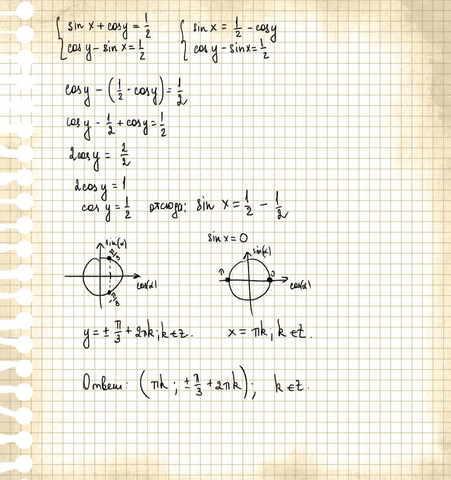 { sin x + cos y = 1/2   { sin x = 1/2 - cos y
{ cos y - sin x = 1/2   { cos y - sin x = 1/2
cos y - (1/2 - cos y) = 1/2
cos y - 1/2 + cos y = 1/2
2cos y = 2/2
2cos y = 1
cos y = 1/2 отсюда: sin x = 1/2 - 1/2
sin x = 0
sin(α) π/3 cos(α) -π/3
sin(α) π 0 cos(α)
y = ± π/3 + 2πk; k∈Z. x = πk, k∈Z.
Ответ: (πk; ± π/3 + 2πk); k∈Z.